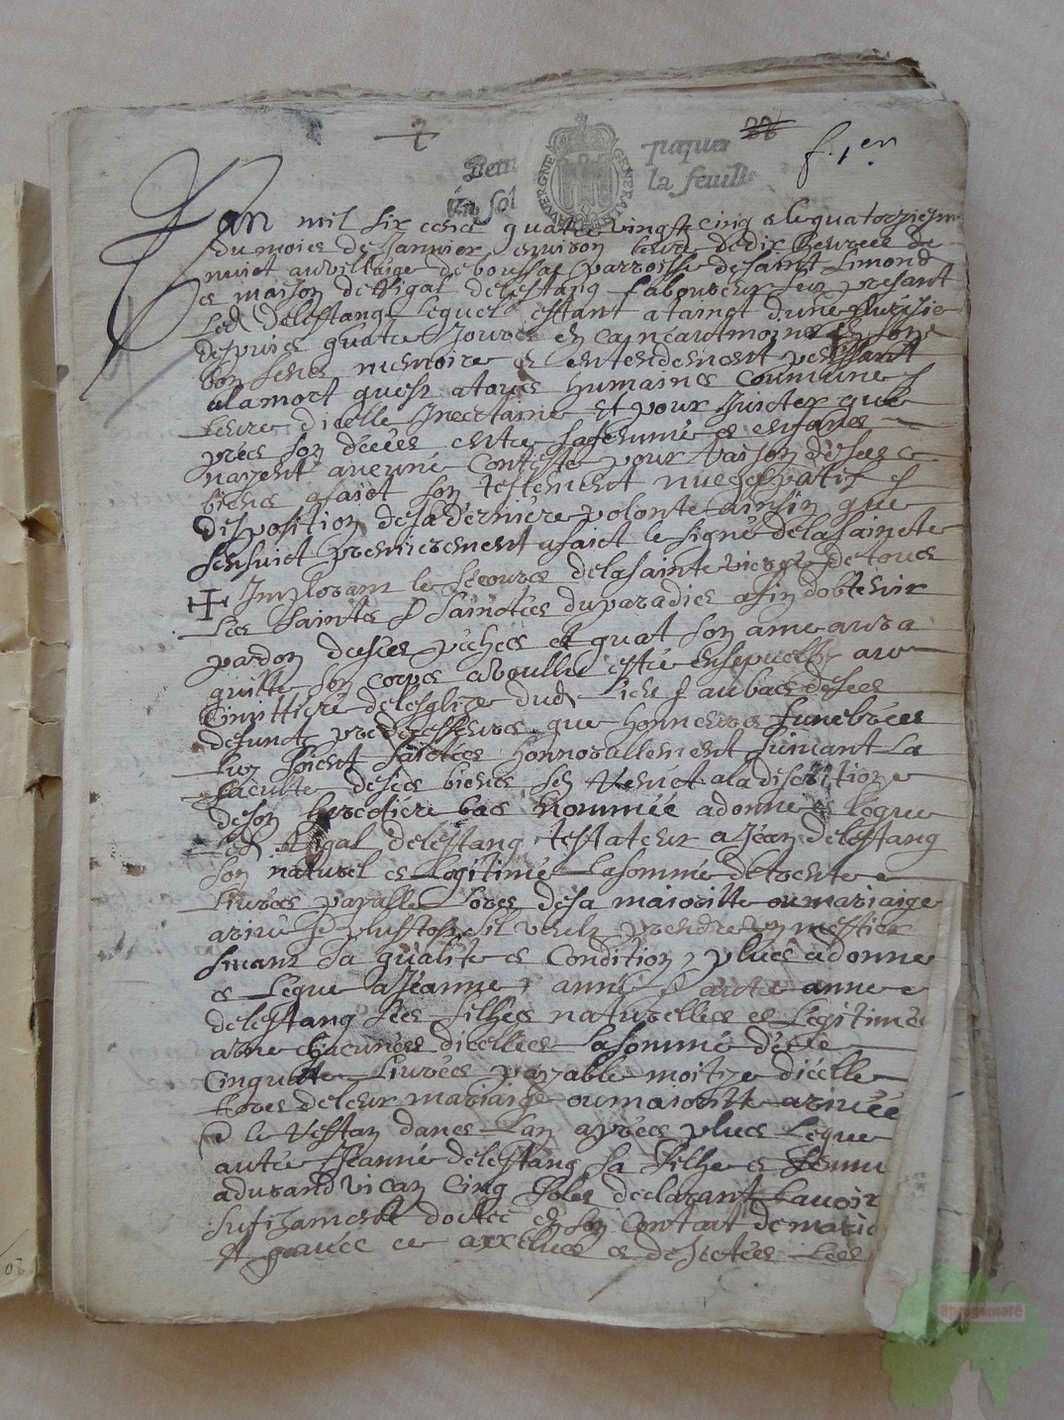 28
Demi papier f. 1er
Un sol la feuille
AUVERGNE GENERALITE
Lan mil six cens quatre vingtz cinq & le quatorziesme
du mois de Janvier environ leure de dix heures de
nuict au villaige de boussac parroisse de saint Simond
& maison de Rigal delestang laboureur sur presant
Led delestang Lequel estant ataint dune pluresie
despuis quatre Jours en ca neautmoins en son
bon sens memoire & entendement pensant
ala mort quest a tous humains commune &
Leure dicelle Incertaine Et pour Juicter que
pres son deces entre sa femme & enfans
nayent aucune conteste pour raison de ses
biens a faict son testement nuncupatif &
disposition de sa derniere volonte ainsin que
sensuict premierement a faict le signe de la saincte
✠ Implorant le secours de la sainte vierge de tous
Les saints & sainctes du paradis afin dobtenir
pardon de ses peches et quat son ame aura
quitte son corps a voullu estre ensepvelly au
Cimittiere de lesglize dud lieu & au bas de ses
defunctz predecesseurs que honneurs funebres
luy soient faictes honnorablement suivant La
faculte de ses biens sen Remet a la discretion
de son heretiere bas nommee a donne & legue
led Rigal delestang testateur a Jean delestang
son naturel & Legitime La somme de trente
Livres payable Lors de sa maioritte ou mariaige
arive & plustost sil veult prendre un mestier
suivant sa qualite & condition, plus a donne
& Legue a Jeanne, anne & autre anne
delestang ses filhes naturelles & Legitimes
a une chacunes dicelles La somme de
Cinquante Livres payable moitye dicelle
Lors de leur mariaige ou maioritte arivee
& le Restan dans Lan apres plus Legue
autre Jeanne delestang sa filhe & femme
a durand vican Cinq solz declarant Lavoir
sufizament dottee en son contrat de mariaige
Et privee et exclues & desiectees Les